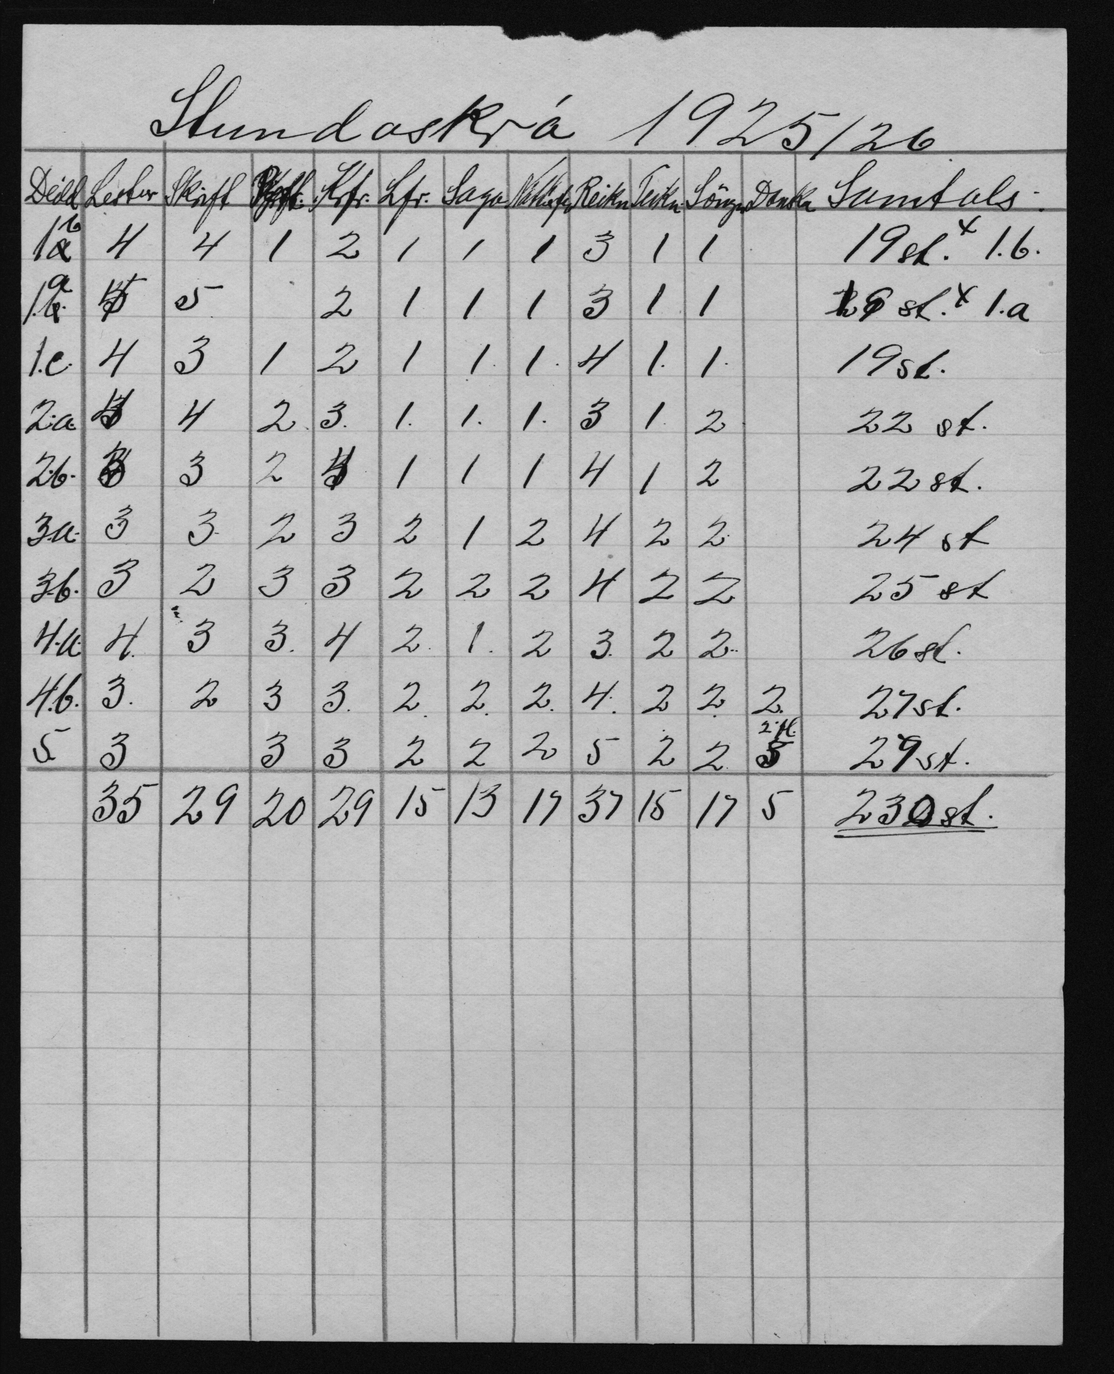 Stundaskrá 1925/26
Deild Lestur Skrift Krfr. Lfr. Saga Reikn Teikn Söngur Danska Samtals
1b 4 4 1 2 1 1 1 3 1 1 19 st. x 1.b.
1a 5 5 2 1 1 1 3 1 1 19 st. x 1.a
1.c. 4 3 1 2 1 1. 1. 4 1. 1. 19 st.
2.a. 4 2 3. 1. 1. 1. 3 1. 2 22 st.
2.b. 3 2 1 1 1 4 1 2 22 st.
3a. 3 3 2 3 2 1 2 4 2 2 24 st
3.b. 3 2 3 3 2 2 2 4 2 2 25 st
4.a. 4. 3 3. 4 2. 1. 2 3. 2 2. 26 st.
4.b. 3. 2 3 3. 2. 2. 2. 4. 2 2 2. 27 st.
5 3 3 3 2 2 2 5 2 2 3 29 st.
35 29 20 29 15 13 17 37 15 17 5 230 st.